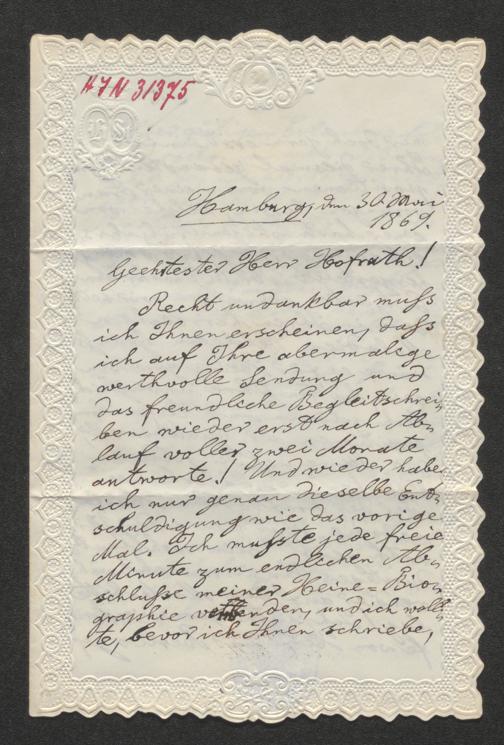 HIN 31375
Hamburg, den 30 Mai
1869.
Geehrtester Herr Hofrath!
Recht undankbar muß
ich Ihnen erscheinen, daß
ich auf Ihre abermalige
werthvolle Sendung und
das freundliche Begleitschrei-
ben wieder erst nach Ab-
lauf voller zwei Monate
antworte! Und wieder habe
ich nur genau dieselbe Ent-
schuldigung wie das vorige
Mal. Ich mußte jede freie
Minute zum endlichen Ab-
schlusse meiner Heine-Bio-
graphie verwenden, und ich woll-
te, bevor ich Ihnen schriebe,